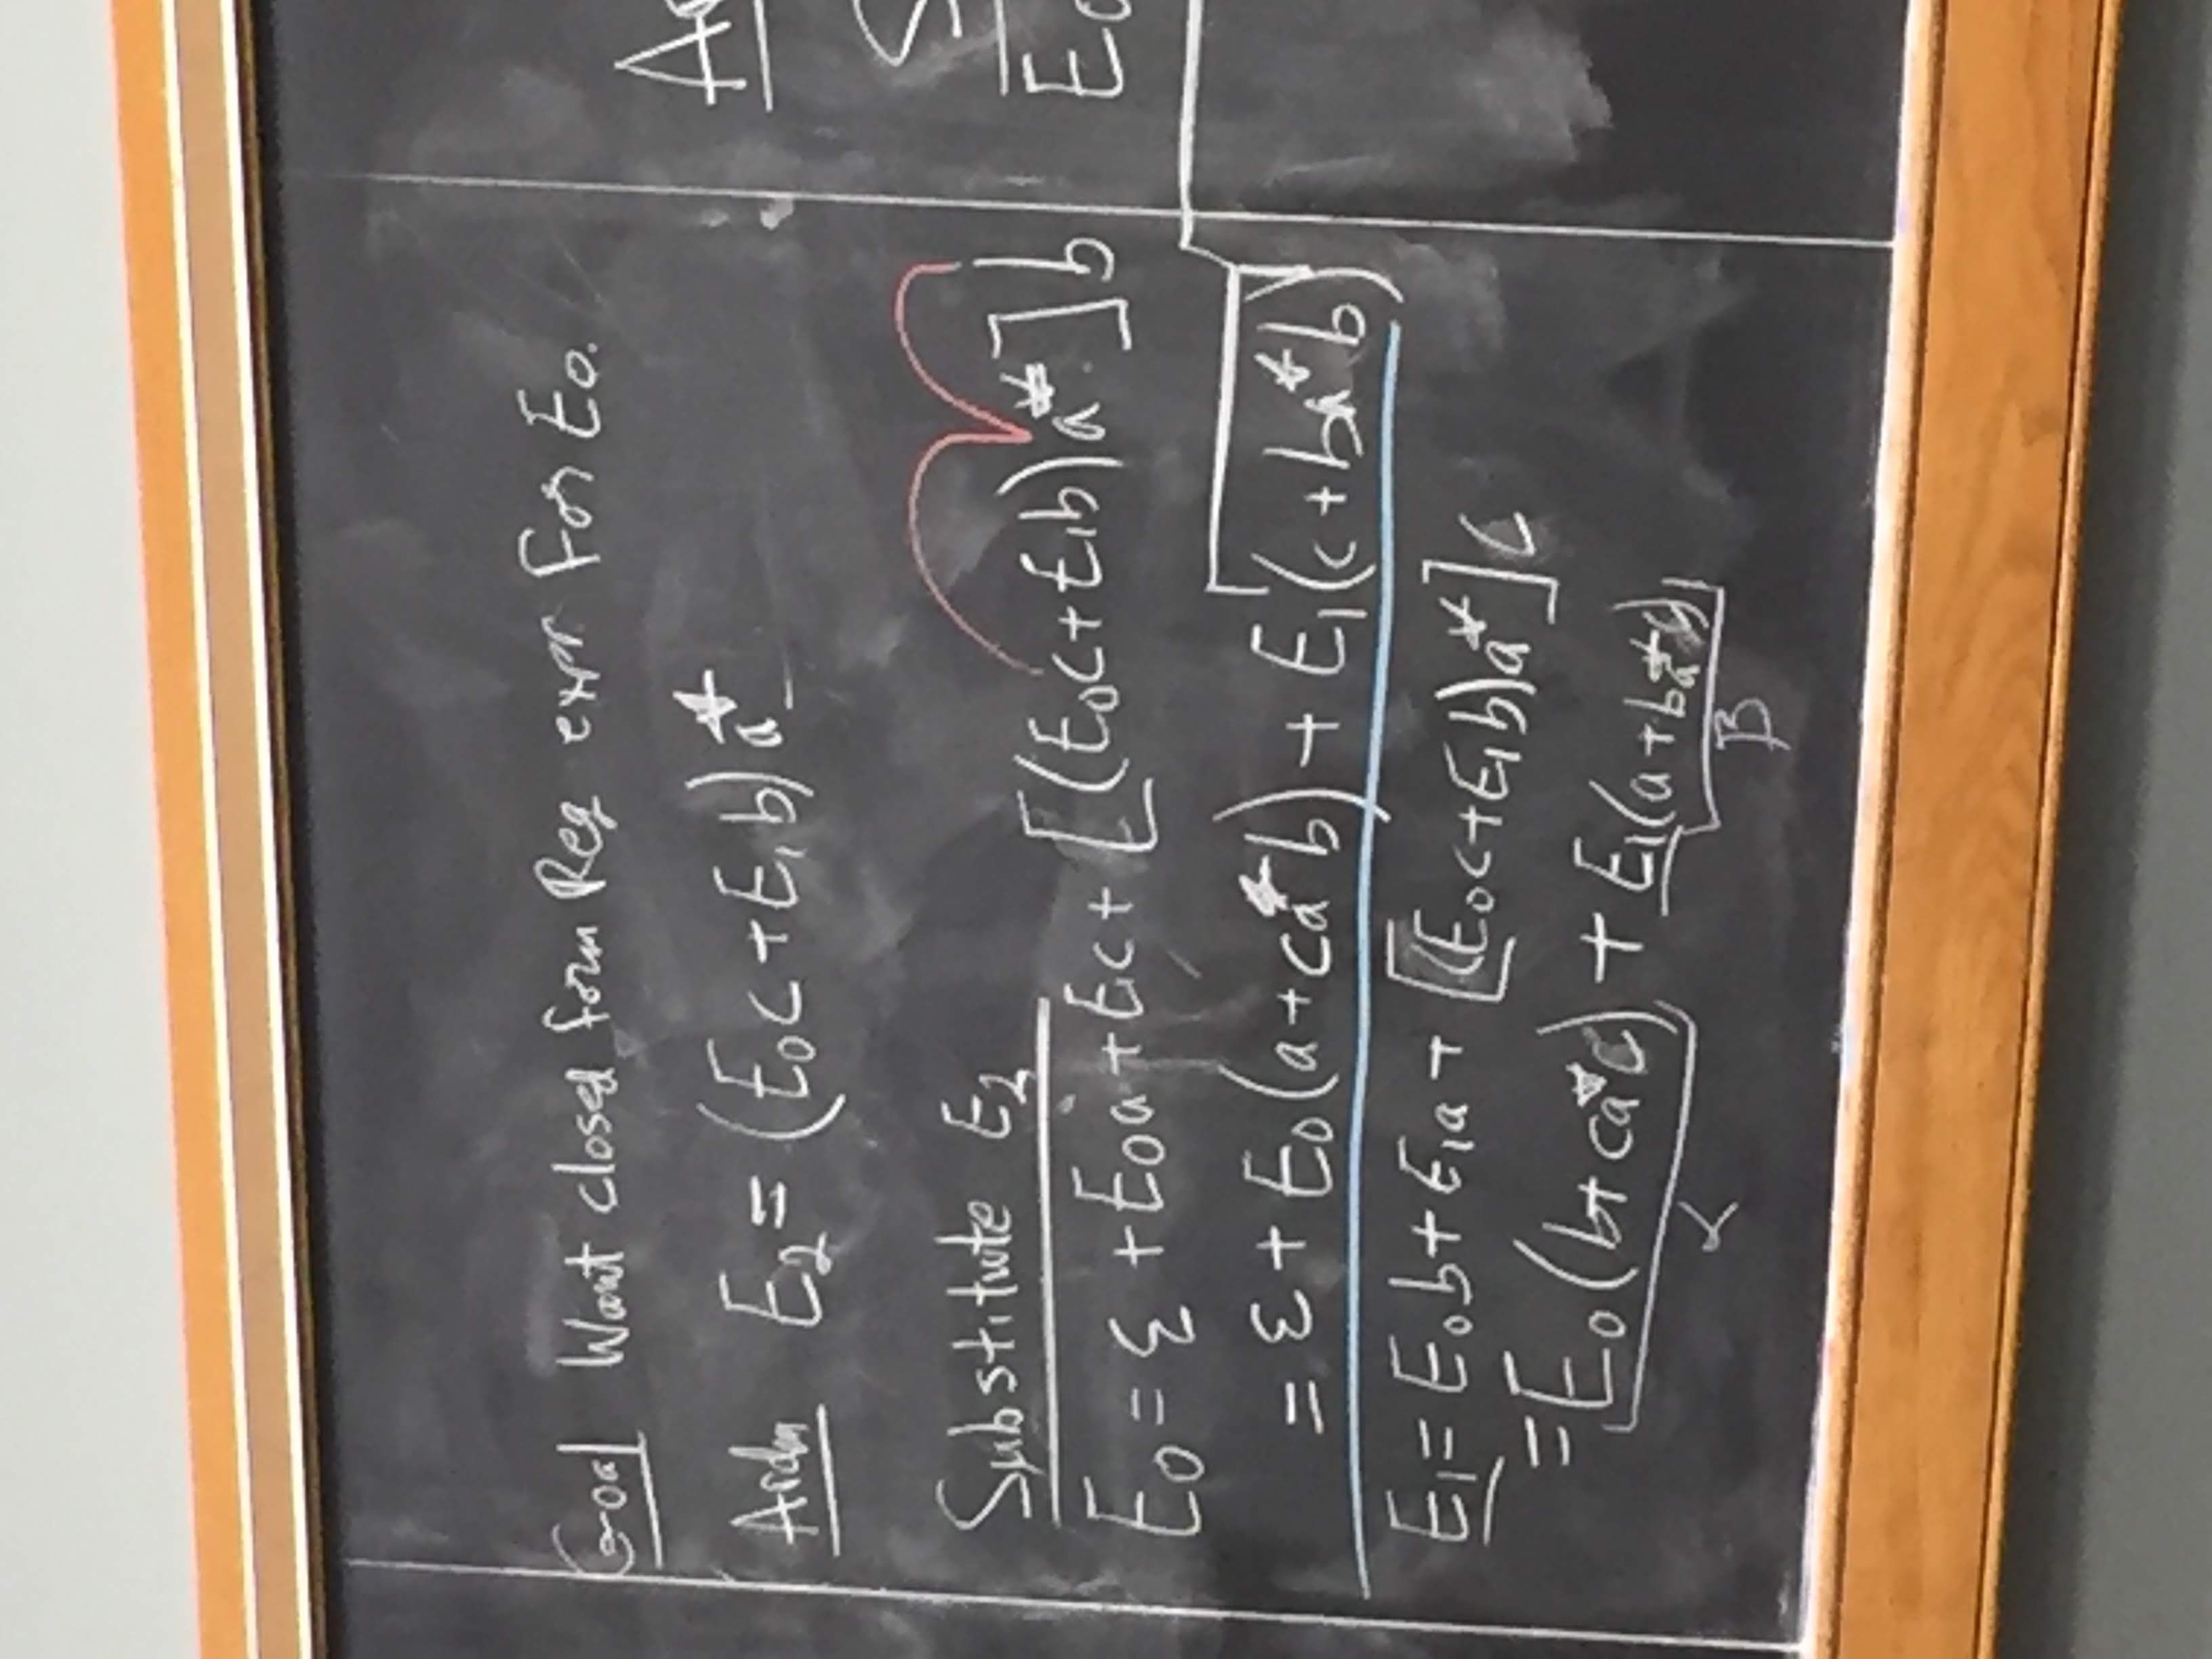 Goal Want closed form Reg expr For E₀.
Arden E₂ = (E₀c + E₁b)a*
Substitute E₂
E₀ = ε + E₀a + E₁c + [(E₀c + E₁b)a*]b
= ε + E₀(a + ca*b) + E₁(c + ba*b)
E₁ = E₀b + E₁a + [(E₀c + E₁b)a*]c
= E₀(b + ca*c) + E₁(a + ba*c)
α β